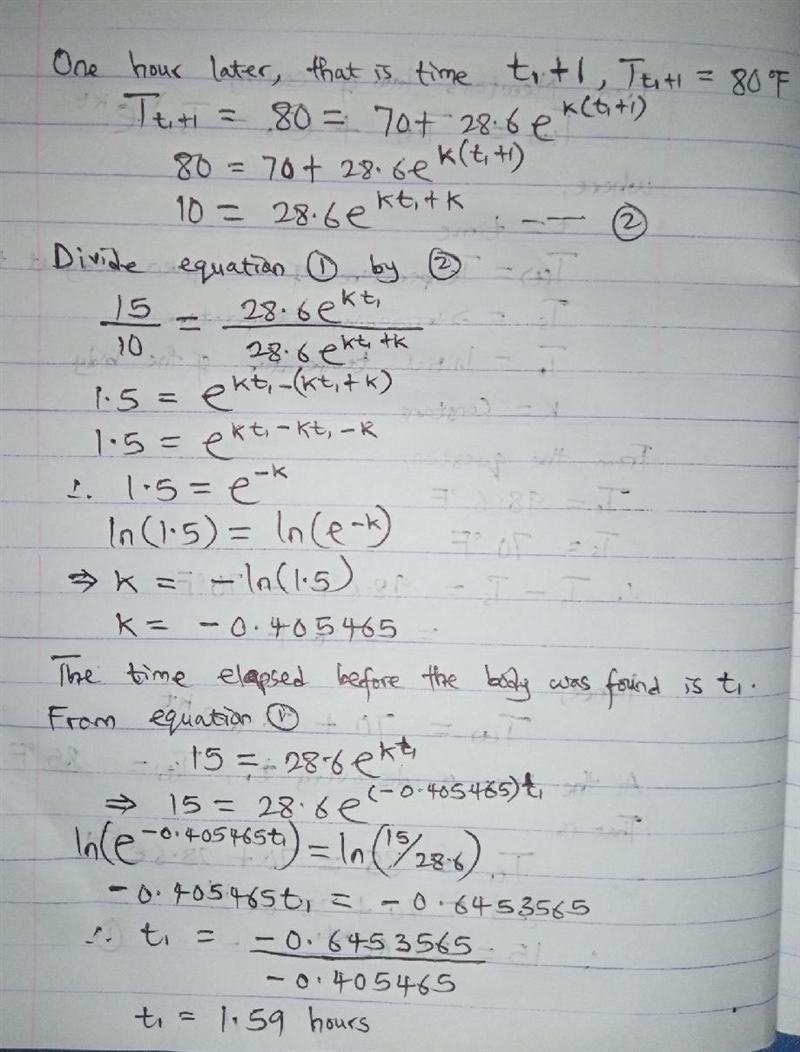 One hour later, that is time t₁+1, T_{t₁+1} = 80°F
T_{t₁+1} = 80 = 70 + 28.6e^{k(t₁+1)}
80 = 70 + 28.6e^{k(t₁+1)}
10 = 28.6e^{kt₁+k} ---- ②
Divide equation ① by ②
15/10 = 28.6e^{kt₁} / 28.6e^{kt₁+k}
1.5 = e^{kt₁-(kt₁+k)}
1.5 = e^{kt₁-kt₁-k}
∴ 1.5 = e^{-k}
ln(1.5) = ln(e^{-k})
⇒ k = -ln(1.5)
k = -0.405465
The time elapsed before the body was found is t₁.
From equation ①
15 = 28.6e^{kt₁}
⇒ 15 = 28.6e^{(-0.405465)t₁}
ln(e^{-0.405465t₁}) = ln(15/28.6)
-0.405465t₁ = -0.6453565
∴ t₁ = -0.6453565 / -0.405465
t₁ = 1.59 hours